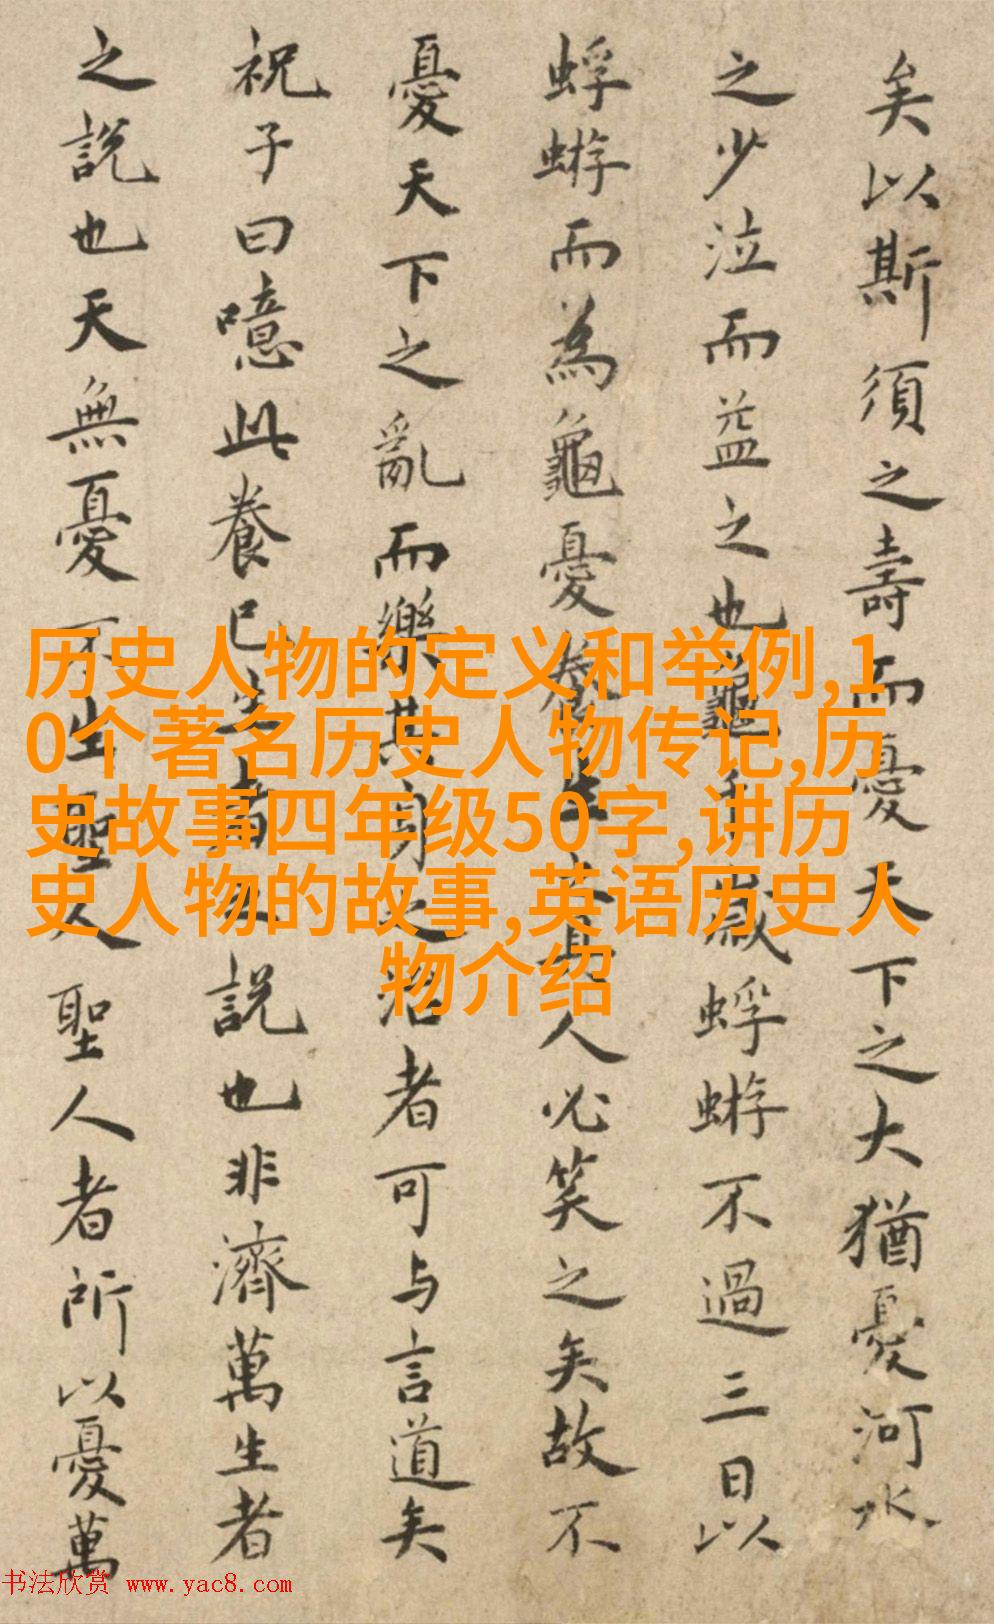 矣以斯須之壽而憂天下之大猶憂河水
之少泣而益之也龜千歲蜉蝣不過三日以
蜉蝣而為龜憂養生之具人必笑之矣故不
憂天下之亂而樂其身之治者可与言道矣
祝子曰噫此養已生者之說也非濟萬生者
之說也天無憂不生聖人聖人者所以憂萬
历史人物的定义和举例,1
0个著名历史人物传记,历
史故事四年级50字,讲历
史人物的故事,英语历史人
物介绍
书法欣赏 www.yac8.com